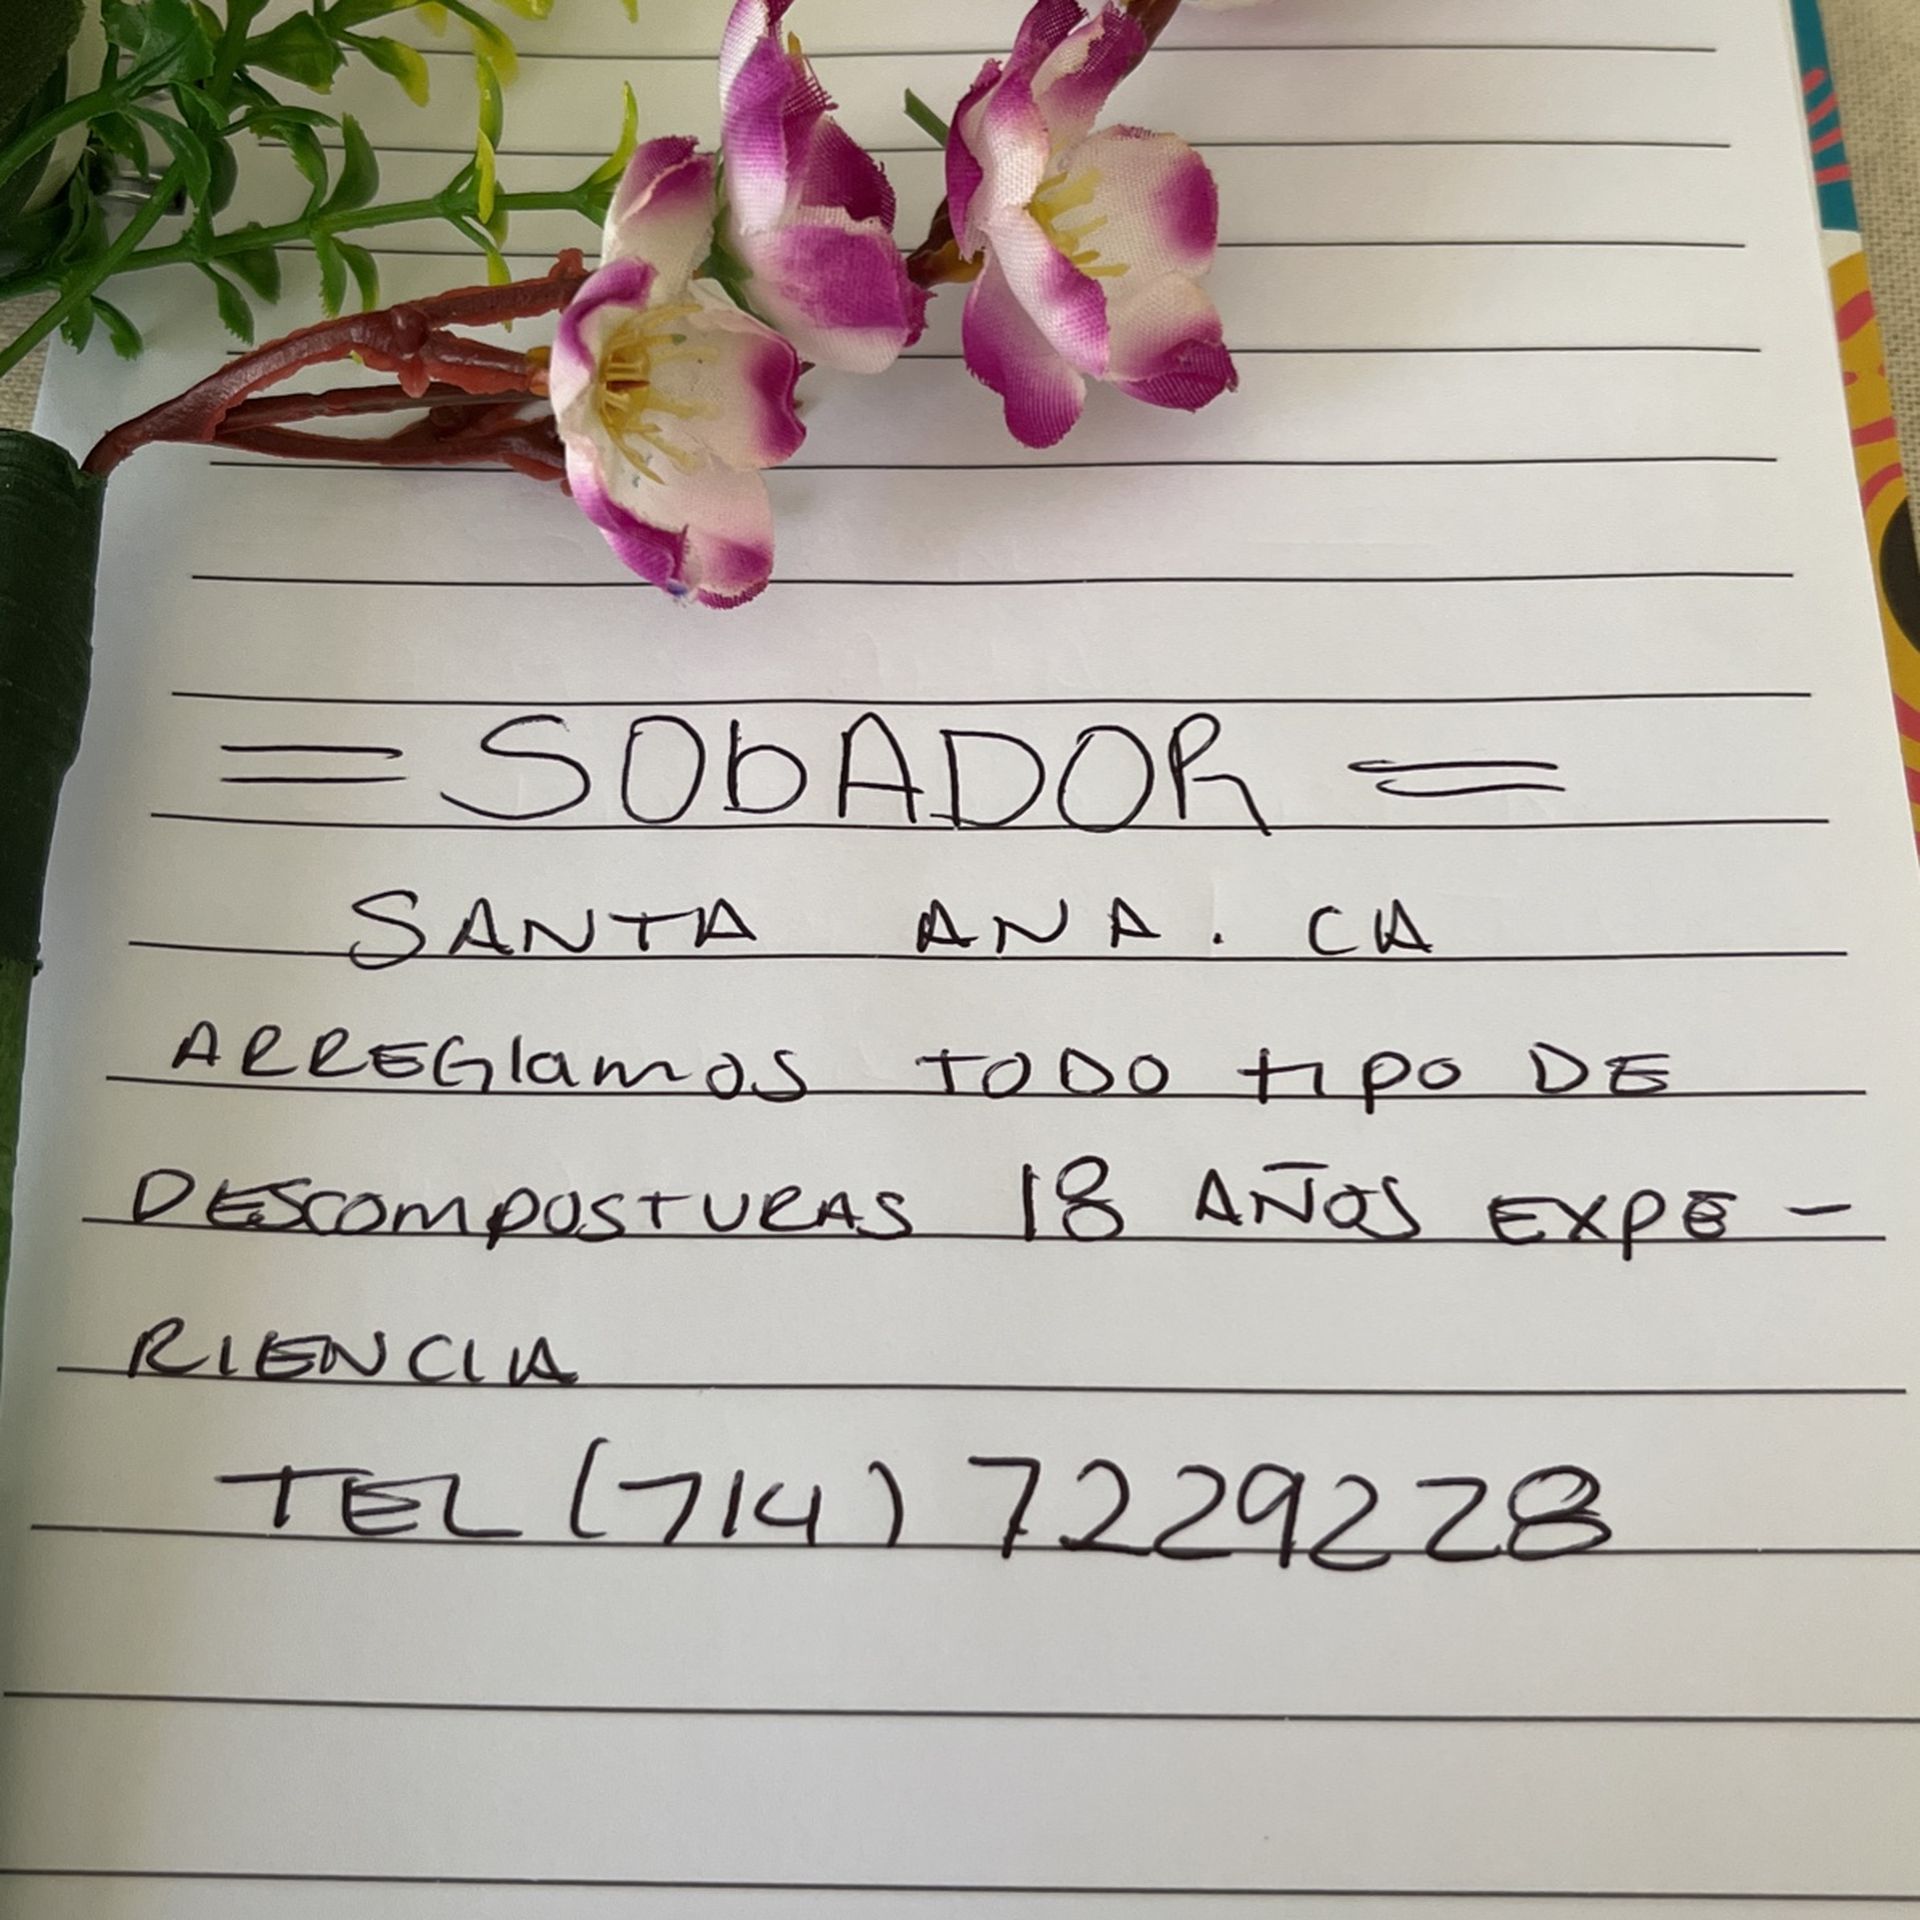 = SObADOR =
SANTA ANA. CA
ARREGlamos TODO tipo DE
DESComposTURAS 18 AÑOS EXPE-
RIENCIA
TEL (714) 7229228